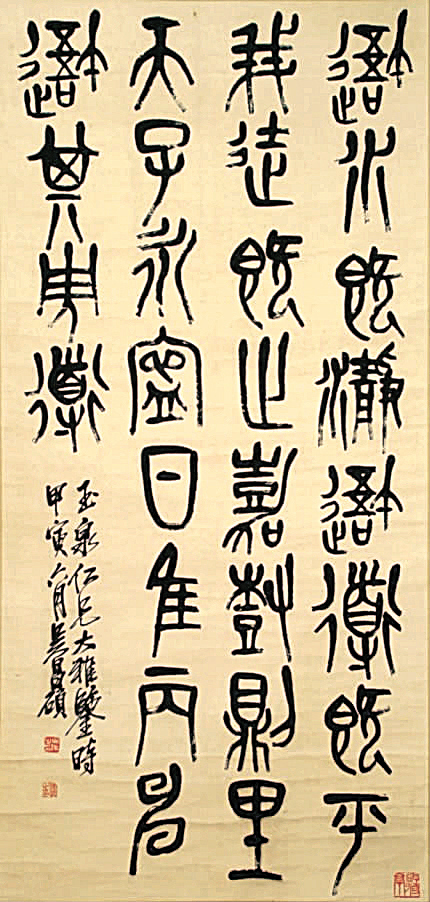 䢩水既瀞䢩道既平
我徒既止嘉樹則里
天子永寧日隹丙申
䢩其道
玉泉仁兄大雅鑒時
甲寅六月吳昌碩